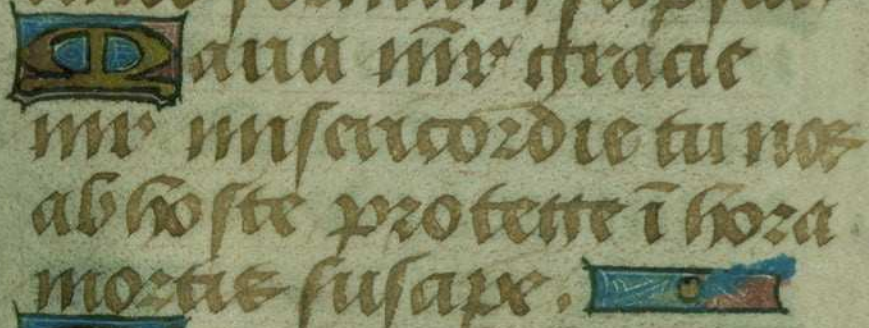 Maria mr̄ gracie
mr̄ misericordie tu nos
ab hoste protette ī hora
mortis suscipe.